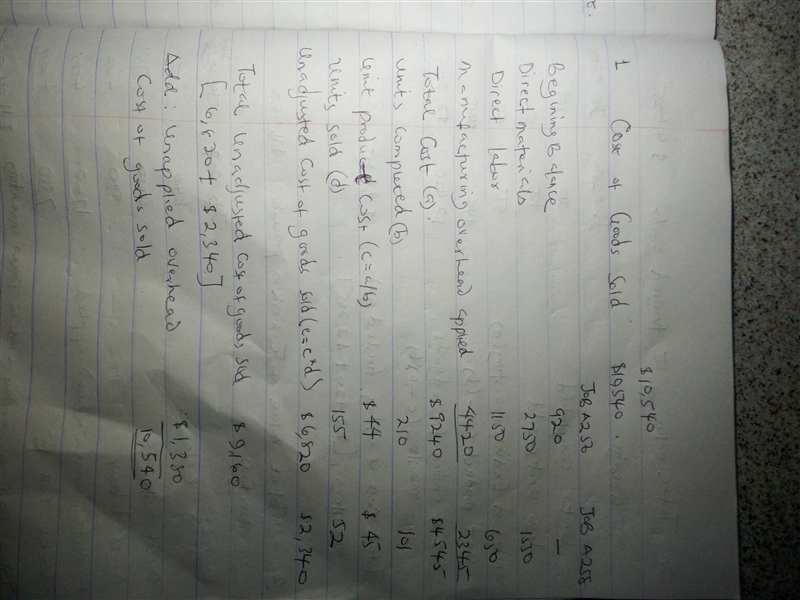 $10,540
1 Cost of Goods Sold $10,540.
JOB A256 JOB A258
Begining Balance 920 —
Direct materials 2750 1550
Direct labor 1150 650
Manufacturing overhead applied 4420 2345
Total Cost (a). $9240 $4545
units completed (b) 210 101
Unit product Cost (c = a/b) $44 $45
units sold (d) 155 52
Unadjusted Cost of goods sold (e = c*d) $6,820 $2,340
Total Unadjusted Cost of goods sold $9,160
[6,820 + $2,340]
Add: Unapplied overhead $1,380
Cost of goods sold 10,540